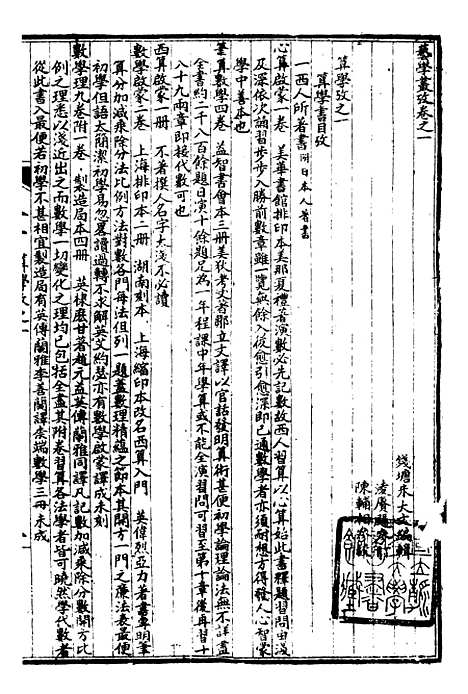 藝學叢攷卷之一
錢塘朱大文編輯
凌賡颺參訂
陳輔相參訂
算學攷之一
算學書目攷
一西人所著書附日本人著書
心算啟蒙一卷 美華書館排印本美那夏禮著演數必先記數故西人習算以心算始此書釋題習問由淺
及深依次誦習步步入勝前數章雖一覽無餘入後愈引愈深即已通數學者亦須耐想方得發人心智蒙
學中善本也
筆算數學四卷 益智書會本三册美狄考文著鄒立文譯以官話發明算術甚便初學論理論法無不詳盡
全書約二千八百餘題日演十餘題足為一年程課中年學算或不能全演習問可習至第十章後再習十
八十九兩章即接代數可也
西算啟蒙一册 不著撰人名字太淺不必讀
數學啟蒙二卷 上海排印本二册 湖南刻本 上海縮印本改名西算入門 英偉烈亞力著書專明筆
算分加減乘除分法比例方法對數各門每法但列一題蓋數理精蘊之節本其開方一門之廉法表最便
初學但語太簡潔初學易忽畧讀過轉不求解英文約瑟亦有數學啟蒙譯成未刻
數學理九卷附一卷 製造局本四册 英棣麼甘著趙元益英傅蘭雅同譯凡記數加減乘除分數開方比
例之理悉以淺近出之而數學一切變化之理均已包括全盡其附卷習算各法學者皆可曉然學代數者
從此書入最便若初學不甚相宜製造局有英傅蘭雅李善蘭譯奈端數學三册未成
算學攷之一